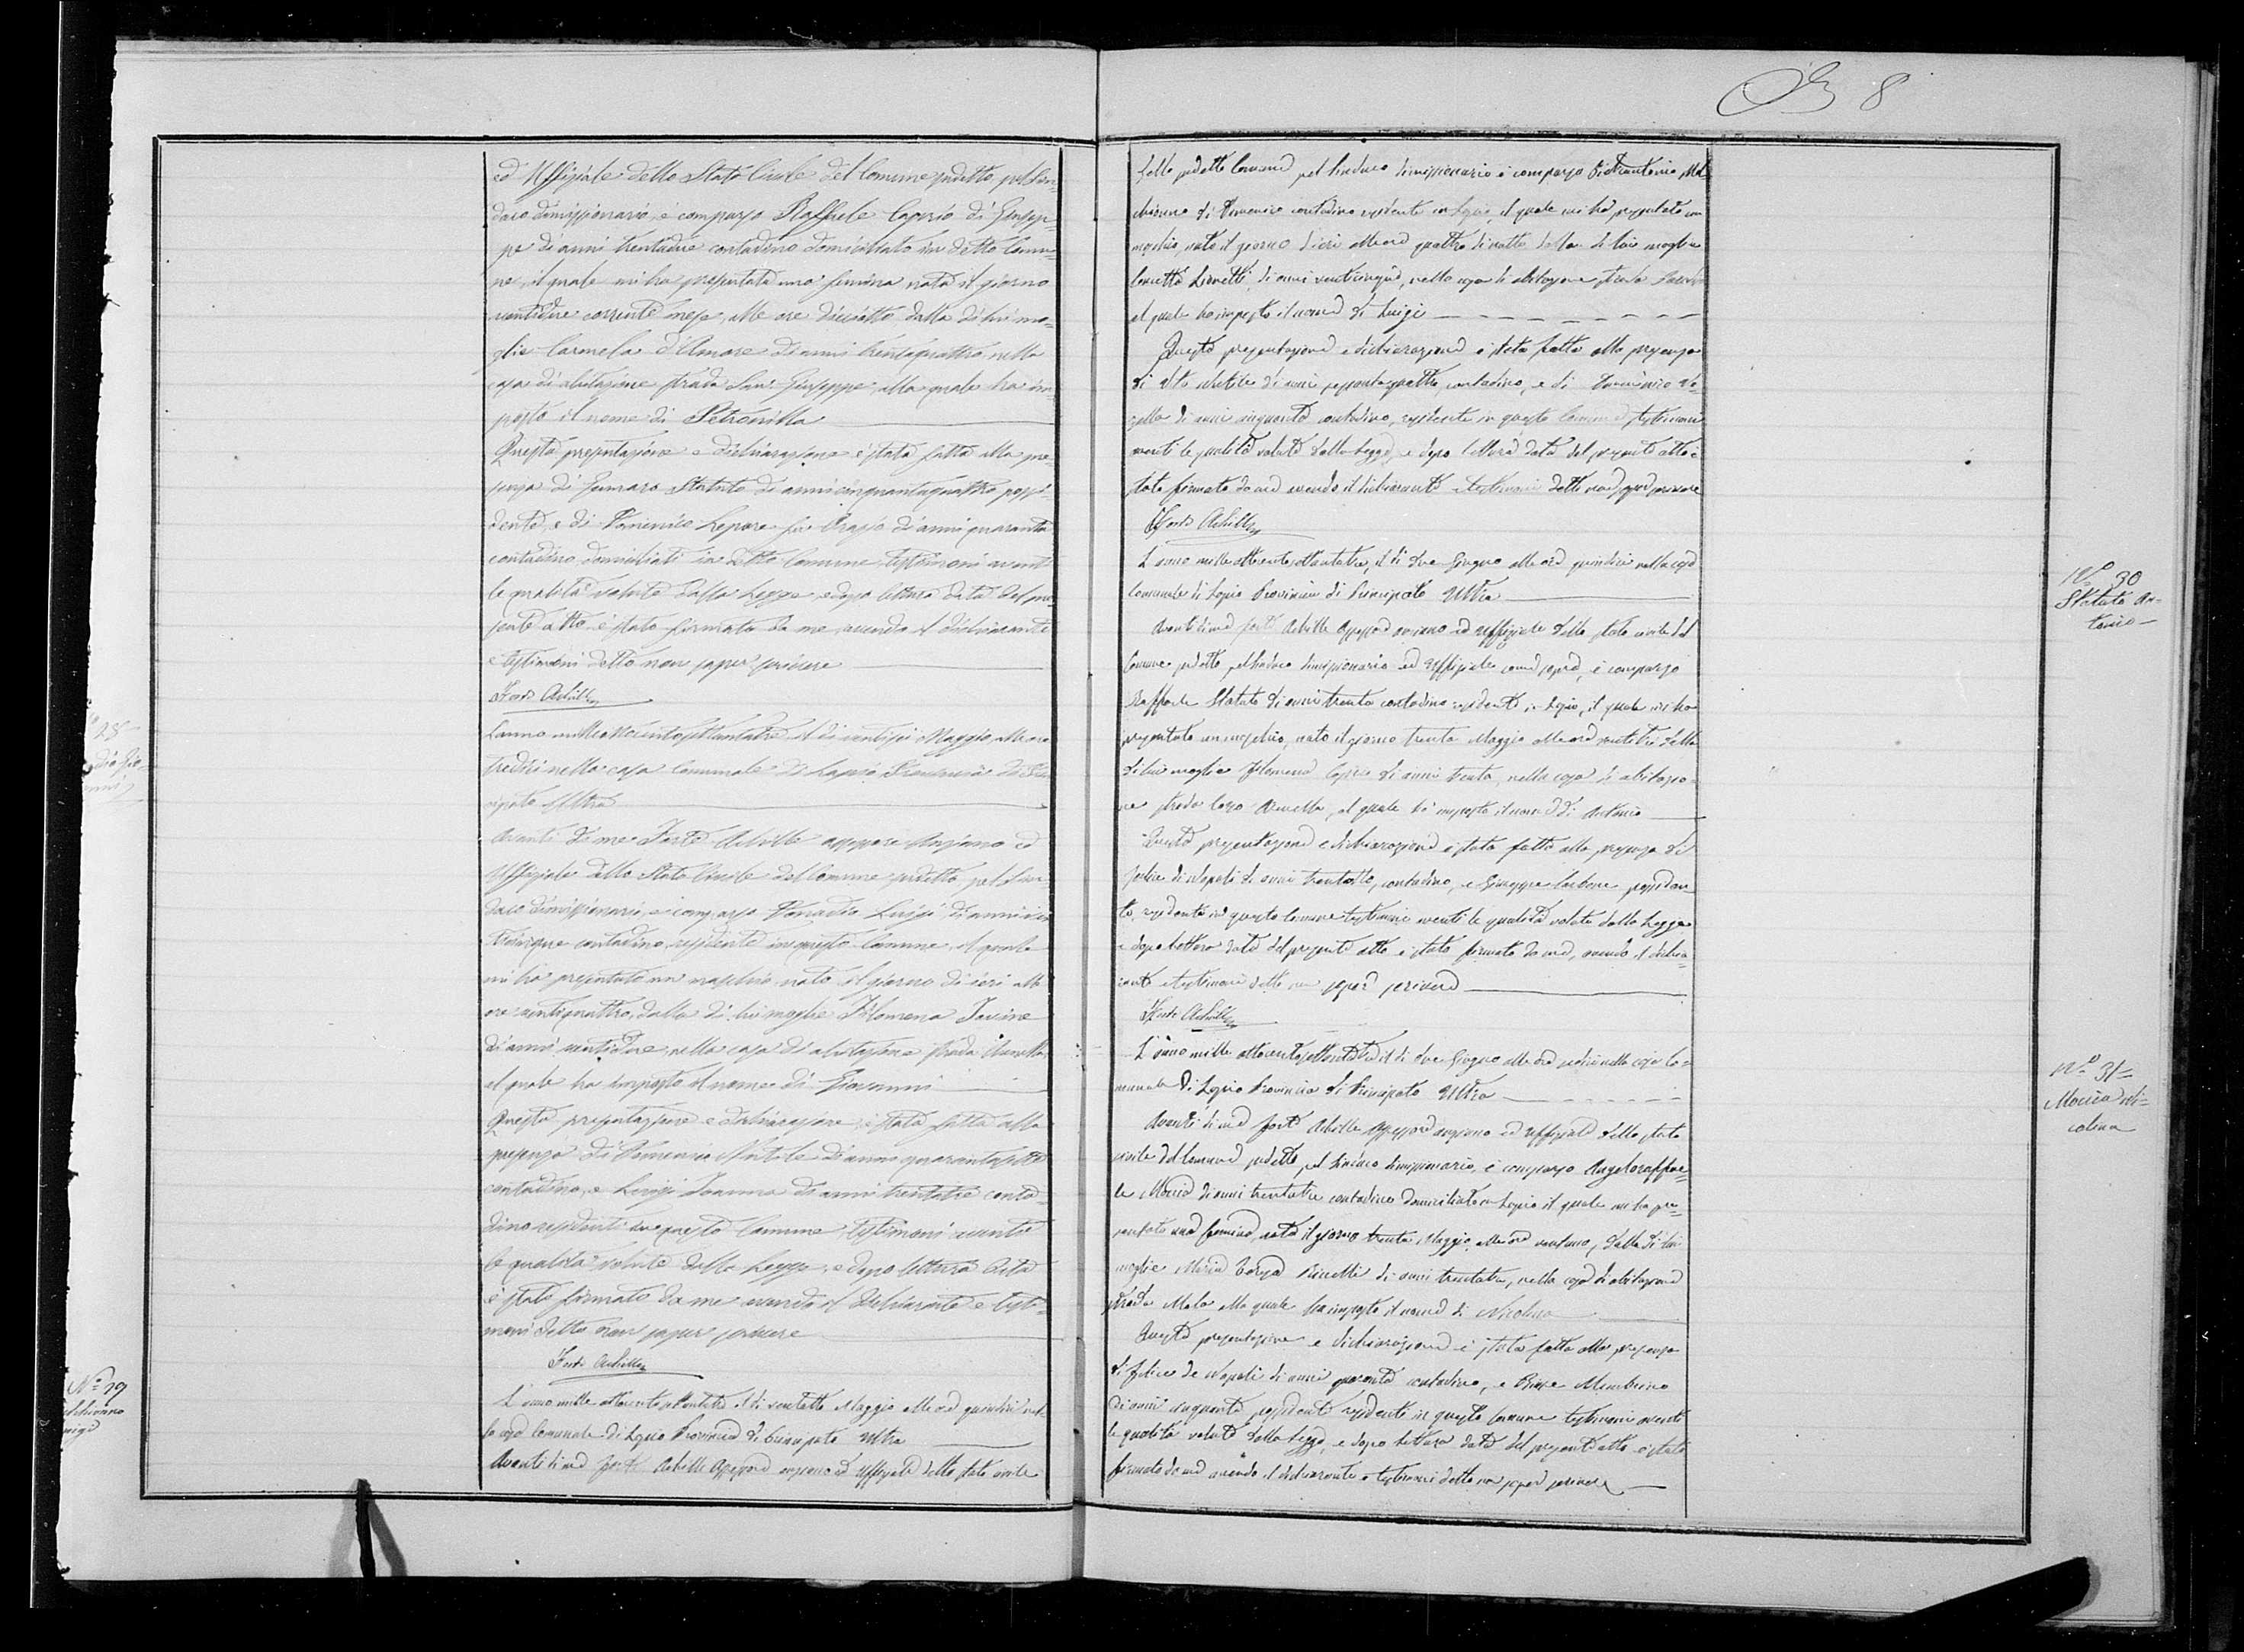 ed Uffiziale dello Stato Civile del Comune predetto pel Sin-
daco dimissionario, è comparso Raffaele Caprio di Giusep-
pe di anni trentadue contadino domiciliato in detto Comu-
ne, il quale mi ha presentata una femina nata il giorno
ventidue corrente mese, alle ore diciotto dalla di lui mo-
glie Carmela d'Amore di anni trentaquattro, nella
casa di abitazione strada San Giuseppe, alla quale ha im-
posto il nome di Petronilla
Questa presentazione e dichiarazione è stata fatta alla pre-
senza di Statuto di anni cinquantaquattro possi-
dente, e di Domenico Lepore fu di anni quaranta
contadino domiciliati in detto Comune testimoni aventi
le qualità volute dalla Legge, e dopo lettura data del pre-
sente atto è stato firmato da me, avendo il dichiarante
e testimoni detto non saper scrivere
Forte Achille
L'anno milleottocentosettantatre il di ventisei Maggio alle ore
tredici nella casa Comunale di Lapio Provincia di Prin-
cipato Ultra
Avanti di me Forte Achille assessore Anziano ed
Uffiziale dello Stato Civile del Comune predetto pel Sin-
daco dimissionario, è comparso Luigi di anni
contadino residente in questo Comune, il quale
mi ha presentato un maschio nato il giorno di ieri alle
ore ventiquattro, dalla di lui moglie Filomena Iovine
di anni ventidue, nella casa di abitazione strada
al quale ha imposto il nome di Giovanni
Questa presentazione e dichiarazione è stata fatta alla
presenza di Domenico di anni quarantasette
contadino, e Luigi Ioanna di anni trentatre conta-
dino residenti in questo Comune testimoni aventi
le qualità volute dalla Legge, e dopo lettura data
è stato firmato da me avendo il dichiarante e testi-
moni detto non saper scrivere
Forte Achille
N.º 29
L'anno mille ottocento settantatre il di ventisette Maggio alle ore quindici nel-
la casa Comunale di Lapio Provincia di Principato Ultra
Avanti di me Forte Achille Assessore anziano ed Uffiziale dello stato civile
8
dello predetto Comune pel Sindaco dimissionario è comparso Pietrantonio Mel-
chionno di Domenico contadino residente in Lapio, il quale mi ha presentato un
maschio, nato il giorno di ieri alle ore quattro di notte dalla di lui moglie
Concetta di anni venticinque, nella casa di abitazione strada
al quale ha imposto il nome di Luigi
Questa presentazione e dichiarazione è stata fatta alla presenza
di di anni sessantaquattro, contadino, e di Domenico
di anni cinquanta contadino, residente in questo Comune, testimoni
aventi le qualità volute dalla Legge, e dopo lettura data del presente atto è
stato firmato da me avendo il dichiarante e testimoni detto non saper scrivere
Forte Achille
N.º 30
Statuto An-
tonio
L'anno mille ottocento settantatre, il di due Giugno alle ore quindici nella casa
Comunale di Lapio Provincia di Principato Ultra
Avanti di me Forte Achille Assessore anziano ed uffiziale dello stato civile del
Comune predetto, pel Sindaco dimissionario ed Uffiziale come sopra, è comparso
Raffaele Statuto di anni trenta contadino residente in Lapio, il quale mi ha
presentato un maschio, nato il giorno trenta Maggio alle ore ventitre dalla
di lui moglie Filomena Caprio di anni trenta, nella casa di abitazio-
ne strada, al quale ha imposto il nome di Antonio
Questa presentazione e dichiarazione è stata fatta alla presenza di
Felice di Napoli di anni trentotto, contadino, e Giuseppe Carbone possiden-
te, residente in questo Comune testimoni aventi le qualità volute dalla Legge
e dopo lettura data del presente atto è stato firmato da me, avendo il dichia-
rante e testimoni detto non saper scrivere
Forte Achille
N.º 31
Moccia Ni-
colina
L'anno mille ottocento settantatre il di due Giugno alle ore sedici nella casa Co-
munale di Lapio Provincia di Principato Ultra
Avanti di me Forte Achille Assessore anziano ed Uffiziale dello stato
civile del Comune predetto, pel Sindaco dimissionario, è comparso Angeloraffae-
le Moccia di anni trentatre contadino domiciliato in Lapio il quale mi ha pre-
sentato una femina, nata il giorno trenta Maggio, alle ore ventuno, dalla di lui
moglie Maria Teresa di anni trentatre, nella casa di abitazione
strada alla quale ha imposto il nome di Nicolina
Questa presentazione e dichiarazione è stata fatta alla presenza
di Felice de Napoli di anni quaranta contadino, e
di anni cinquanta possidente residente in questo Comune testimoni aventi
le qualità volute dalla Legge, e dopo lettura data del presente atto è stato
firmato da me avendo il dichiarante e testimoni detto non saper scrivere